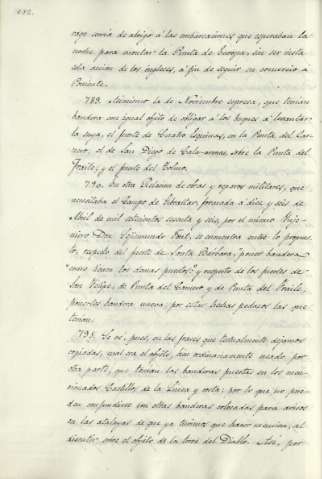 raje servia de abrigo á las embarcaciones que esperaban la
noche para montar la Punta de Europa, sin ser vista
esta accion de los ingleses, á fin de seguir su comercio á
Poniente.
789. Asimismo la de Noviembre espresa, que tenian
bandera con igual objeto de obligar á los buques á levantar
la suya, el fuerte de Cuatro Esquinas, en la Punta del Car-
nero, el de San Diego de Cala-arenas, sobre la Punta del
Fraile, y el fuerte del Tolmo.
790. En otra Relacion de obras y reparos militares, que
necesitaba el Campo de Gibraltar, formada á diez y seis de
Abril de mil setecientos sesenta y seis, por el mismo Inge-
niero Don Segismundo Font, se encuentra entre lo propues-
to, respecto del fuerte de Santa Bárbara, "poner bandera
"como tienen los demas puestos", y respecto de los fuertes de
San Felipe, de Punta del Carnero y de Punta del Fraile,
ponerles bandera nueva, por estar hechas pedazos las que
tenian.
791. Se vé, pues, en las frases que testualmente dejamos
copiadas, cual era el objeto, bien ordinariamente usado, por
otra parte, que tenian las banderas puestas en los men-
cionados Castillos de la Linea y costa; por lo que no pue-
den confundirse con otras banderas colocadas para avisos
en las atalayas de que ya tuvimos que hacer mencion, al
discutir sobre el objeto de la torre del Diablo. Asi, por